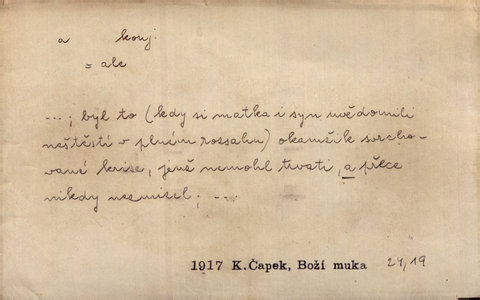 a konj.
= ale
...; byl to (kdy si matka i syn uvědomili
neštěstí v plném rozsahu) okamžik svrcho-
vané krise, jenž nemohl trvati, a přece
nikdy nezmizel; ...
1917 K. Čapek, Boží muka 24,19